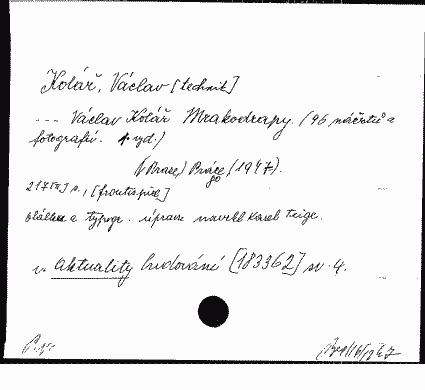 Kolář, Václav [technik]
--- Václav Kolář Mrakodrapy. (96 náčrtů a
fotografií. 1. vyd.)
(V Praze,) Práce, (1947).
217 [III] s., [frontispice]
obálku a typogr. úprava navrhl Karel Teige.
v. Aktuality budování [183362] sv. 4.